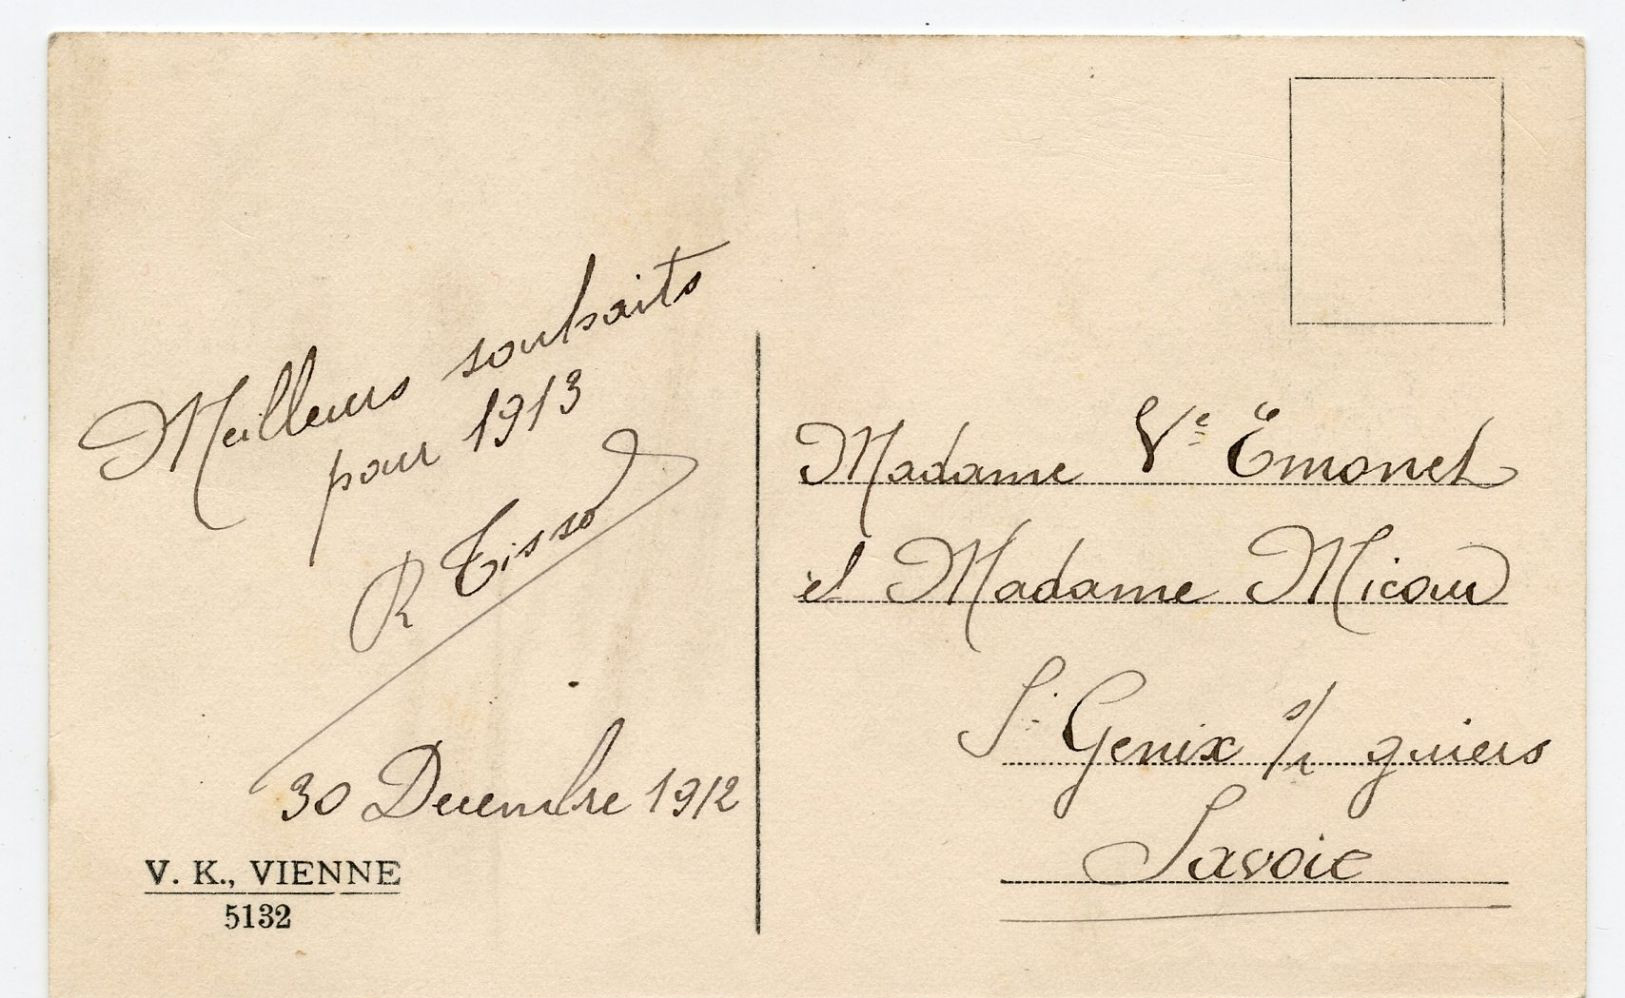 Meilleurs souhaits
pour 1913
R Tissot
30 Decembre 1912
V. K., VIENNE
5132
Madame Vᵉ Emonet
et Madame Micoud
Sᵗ Genix s/ guiers
Savoie